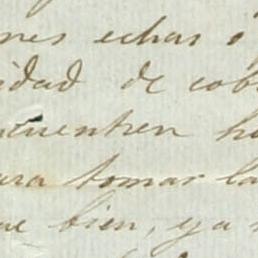 nes echas o
idad de cob
cuentren ha
ara tomar la
ue bien, ya